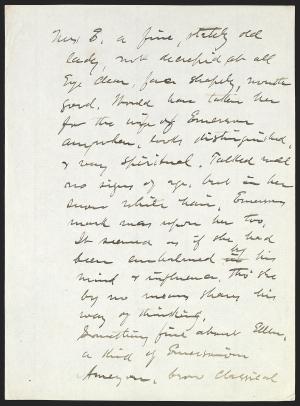 Mrs E. a fine, stately old
lady, not decrepid at all
Eye clear, face shapely, mouth
good. Would have taken her
for the wife of Emerson
anywhere. looks distinguished,
& very spiritual. Talked well
no signs of age, but in her
snow white hair. Emersons
mark was upon her too,
It seemed as if she had
been embalmed by his
mind & influence, tho' she
by no means shares his
way of thinking.
Something fine about Ellen,
a kind of Emersonian
Amazon, brow classical